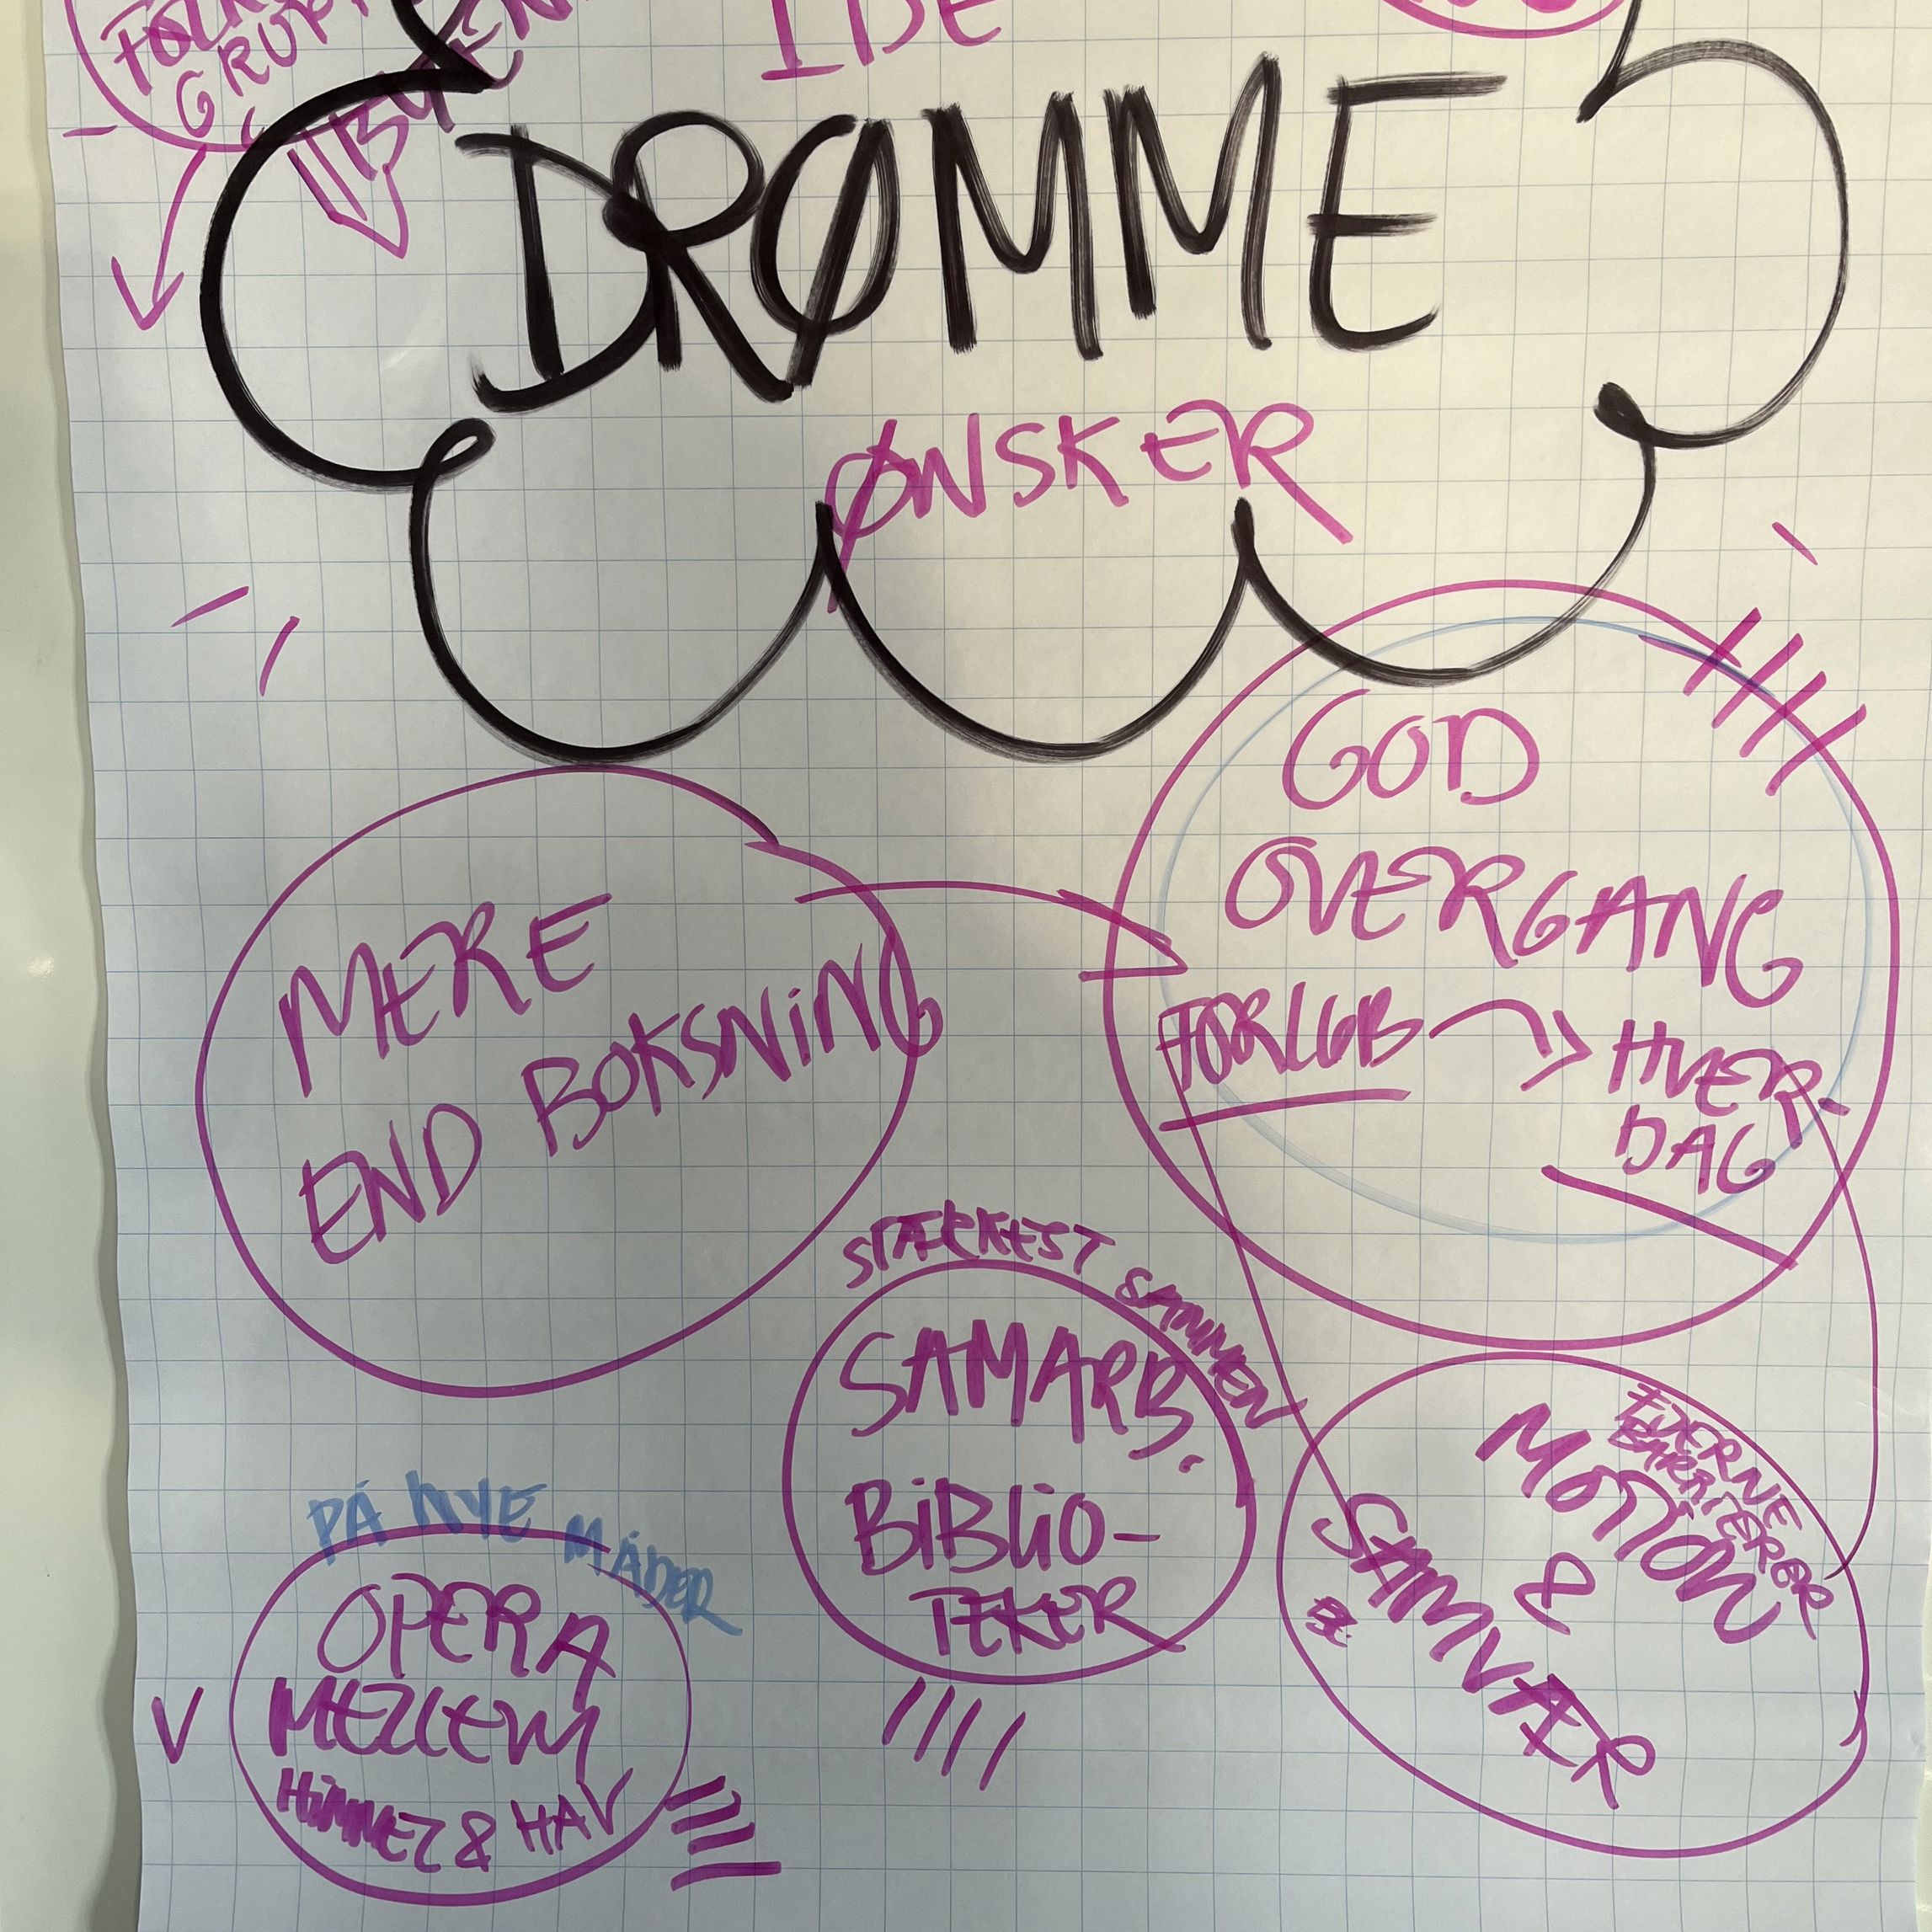 GRUP
IDE
DRØMME
ØNSKER
GOD
OVERGANG
FORLØB → HVER-
DAG
MERE
END BOKSNING
STÆRKEST SAMMEN
SAMARB.
BIBLIO-
TEKER
FJERNE
BARRIERER
MOTION
&
SAMVÆR
PÅ NYE MÅDER
OPERA
MELLEM
HIMMEL & HAV